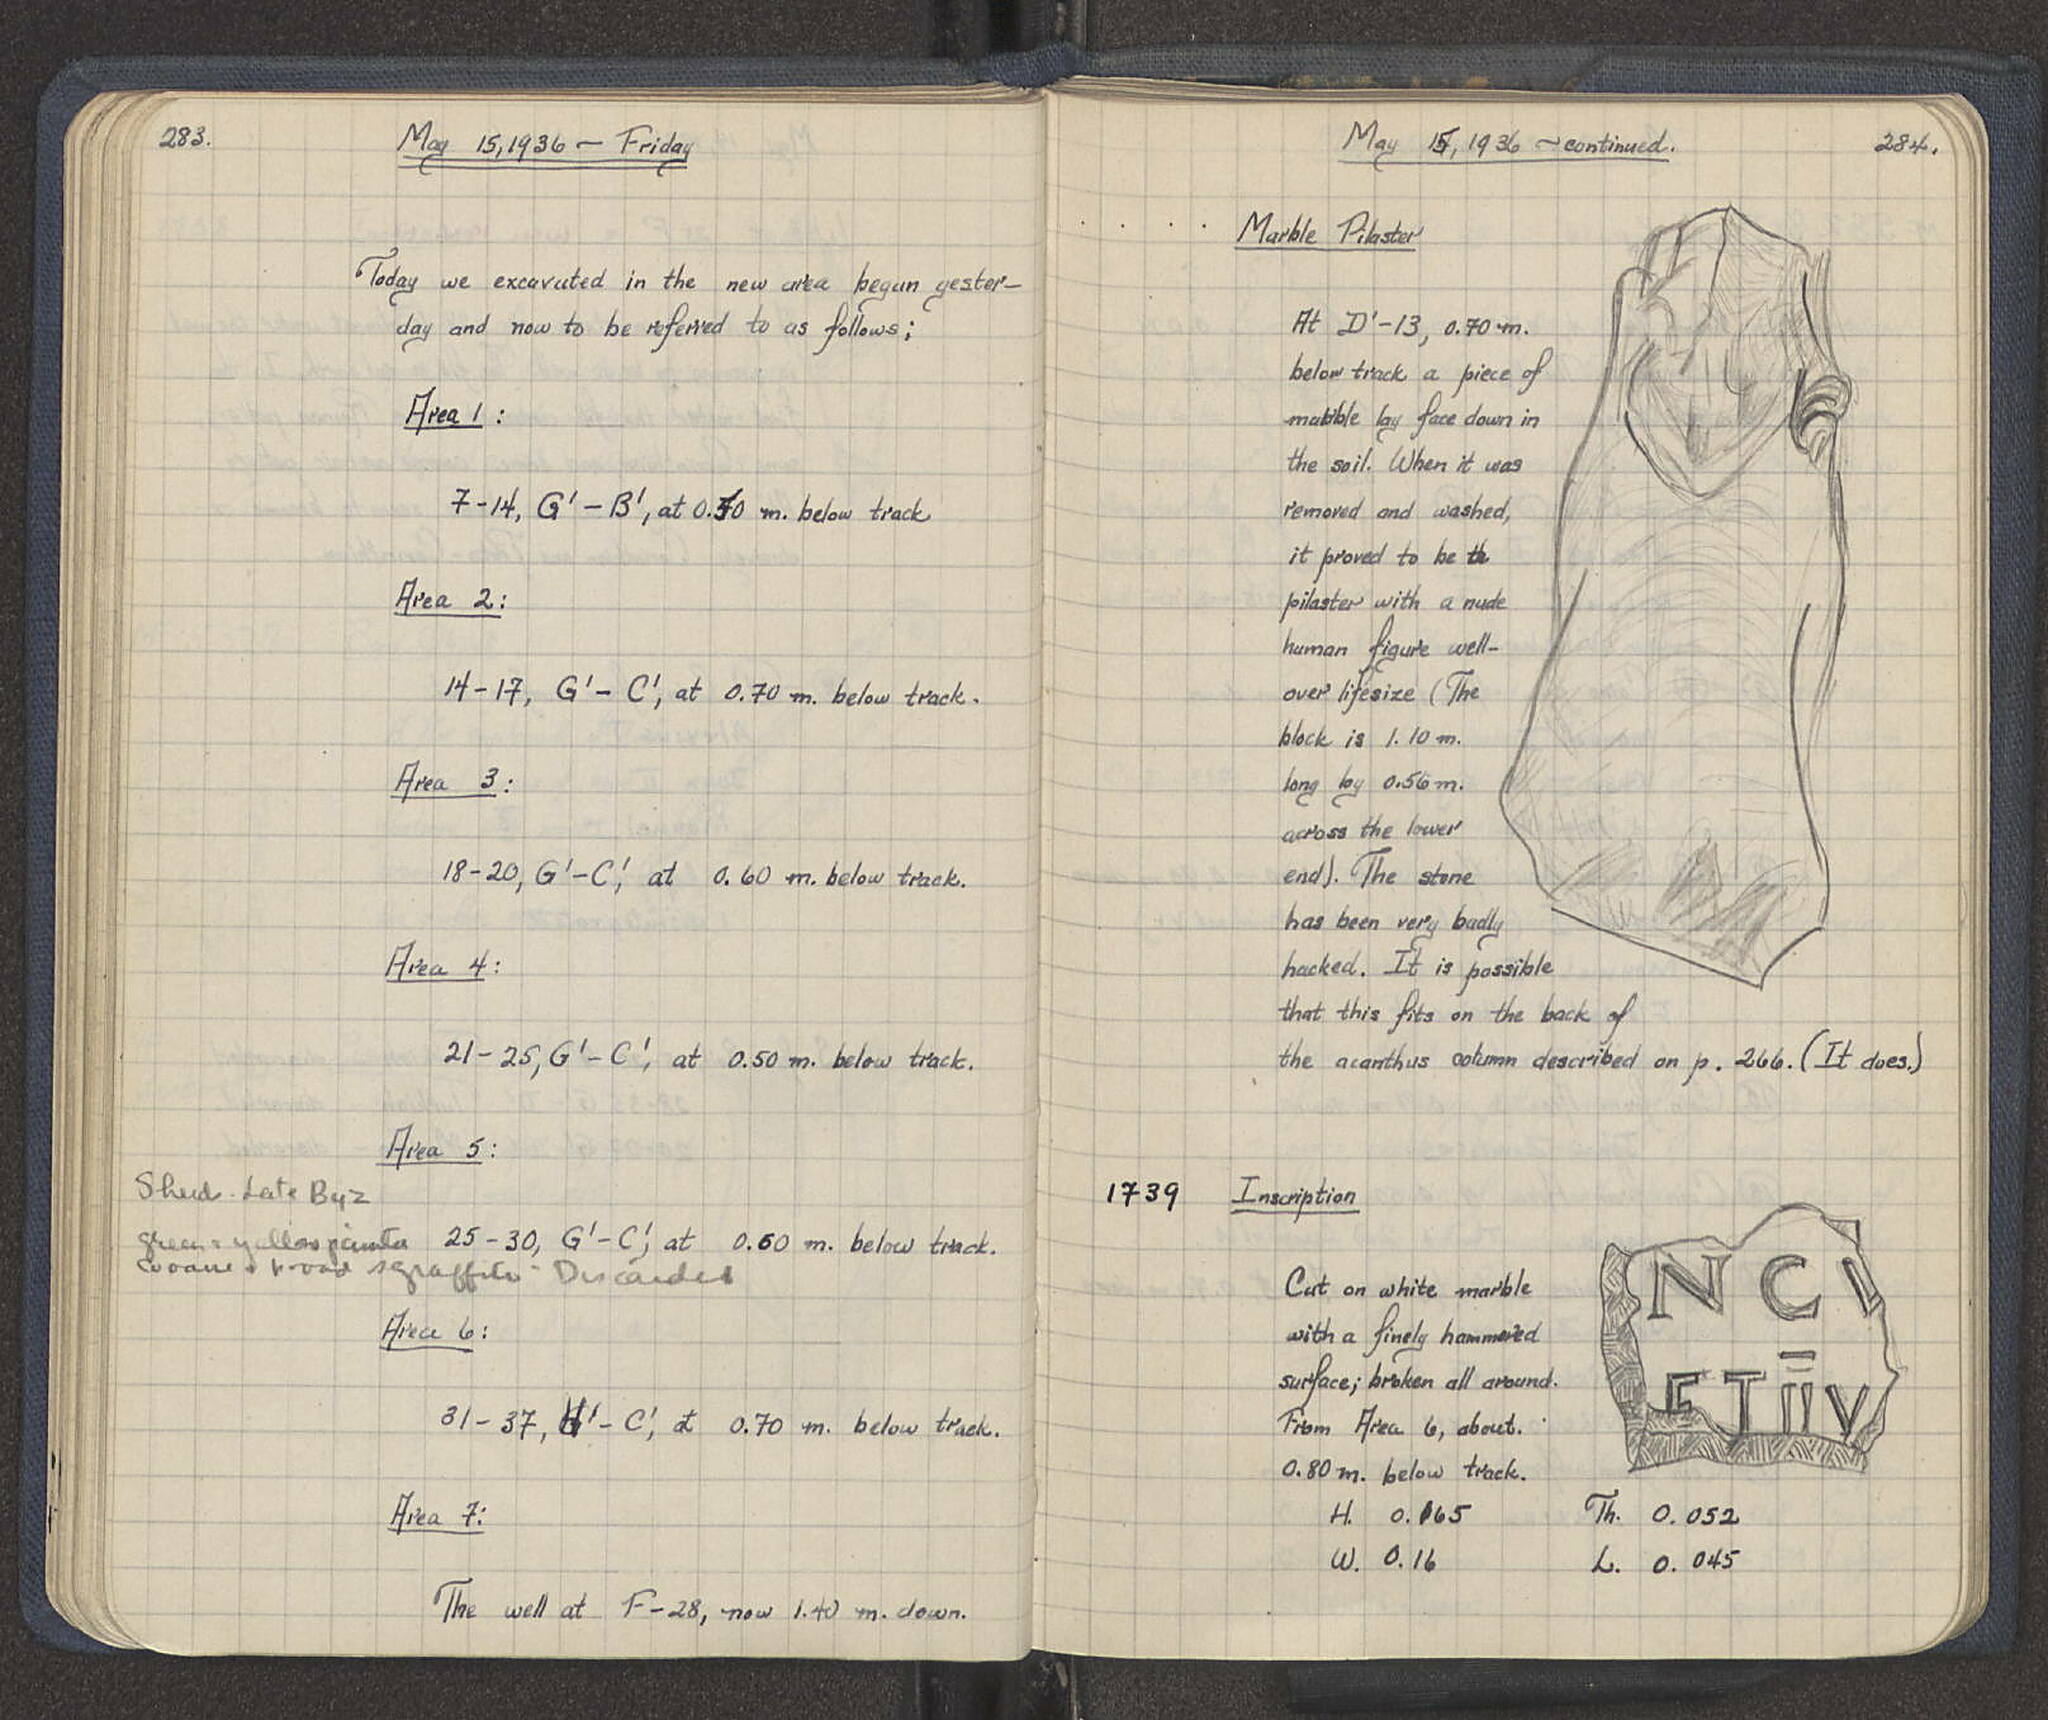 283.
May 15, 1936 – Friday
Today we excavated in the new area begun yester-
day and now to be referred to as follows;
Area 1:
7-14, G'-B', at 0.70 m. below track
Area 2:
14-17, G'-C', at 0.70 m. below track.
Area 3:
18-20, G'-C', at 0.60 m. below track.
Area 4:
21-25, G'-C', at 0.50 m. below track.
Area 5:
Sherds - Late Byz
green & yellow
25-30, G'-C', at 0.60 m. below track.
sgraffito - Discarded
Area 6:
31-37, H'-C', at 0.70 m. below track.
Area 7:
The well at F-28, now 1.40 m. down.
May 15, 1936 – continued.
284.
Marble Pilaster
At D'-13, 0.70 m.
below track a piece of
marble lay face down in
the soil. When it was
removed and washed,
it proved to be the
pilaster with a nude
human figure well-
over lifesize (The
block is 1.10 m.
long by 0.56 m.
across the lower
end). The stone
has been very badly
hacked. It is possible
that this fits on the back of
the acanthus column described on p. 266. (It does.)
1739 Inscription
Cut on white marble
with a finely hammered
surface; broken all around.
From Area 6, about
0.80 m. below track.
H. 0.165 Th. 0.052
W. 0.16 L. 0.045
NCI
ET II V